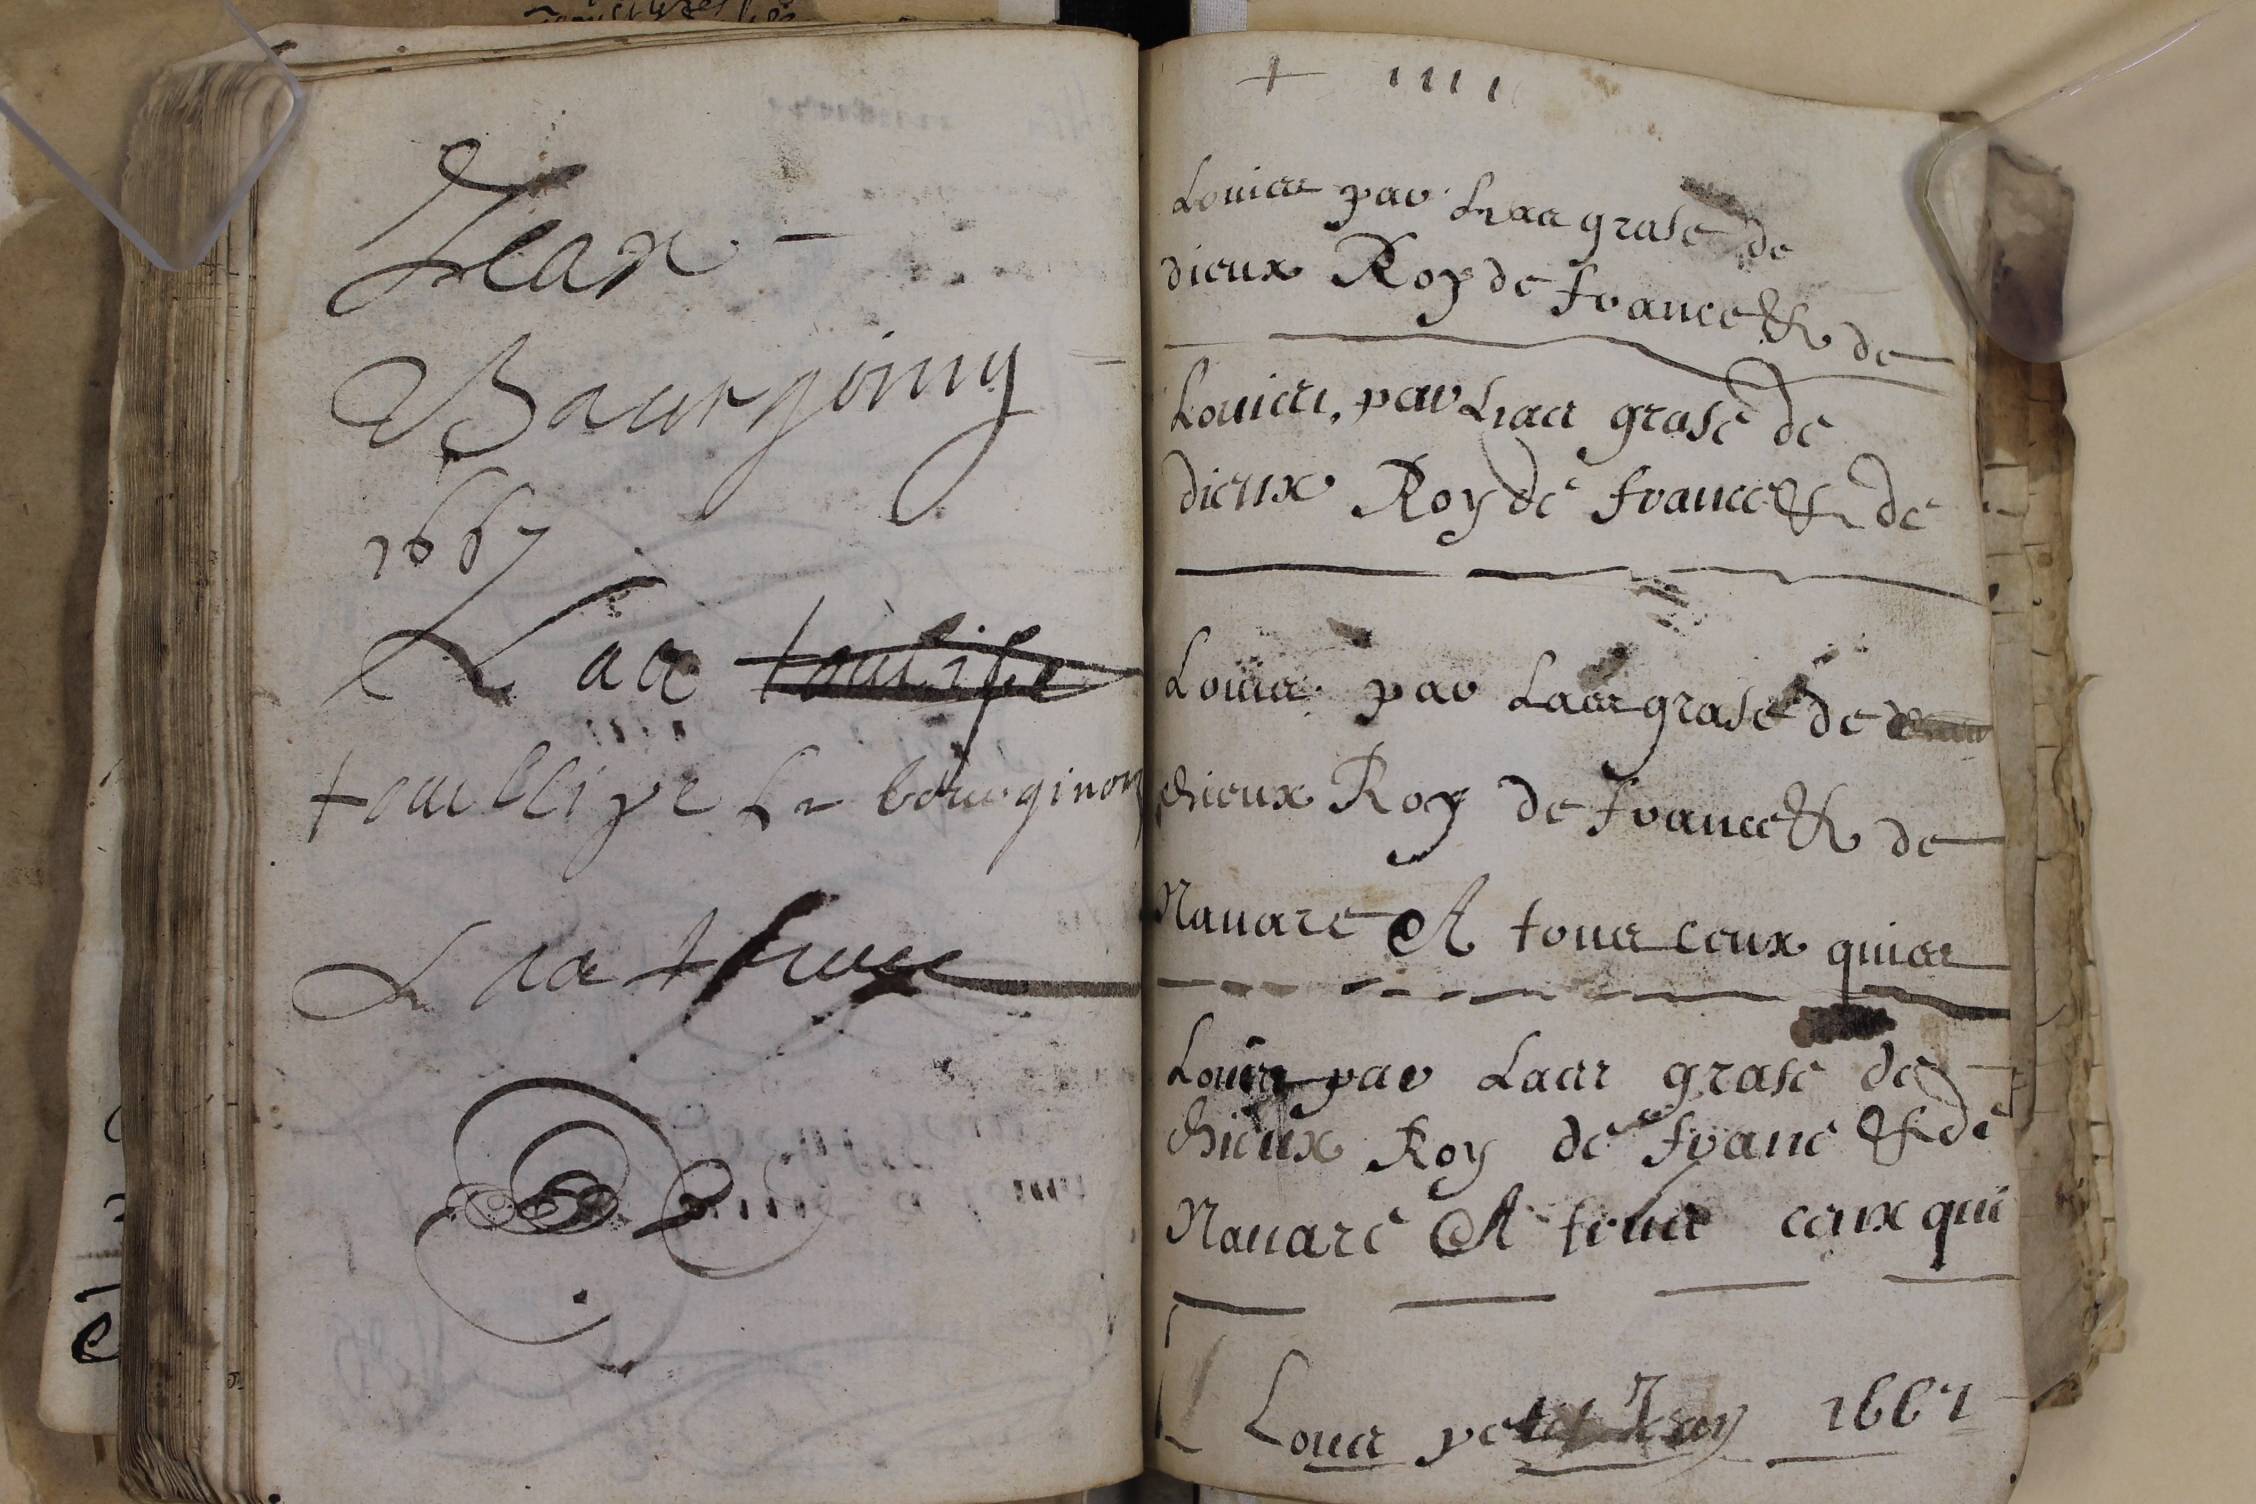 Jean -
Bourgoing
1667
Laa toulipe
toullipe Le bourginon
Laa
+ 1111
Louia par Laa grase de
dieux Roy de france & de
Louia, par Laa grase de
dieux Roy de france & de
Louia par Laa grase de
dhieux Roy de france & de
Nauare A toua ceux quia
Louia par Laa grase de
dhieux Roy de franc & de
Nauare A toua ceux qui
Loua 1667